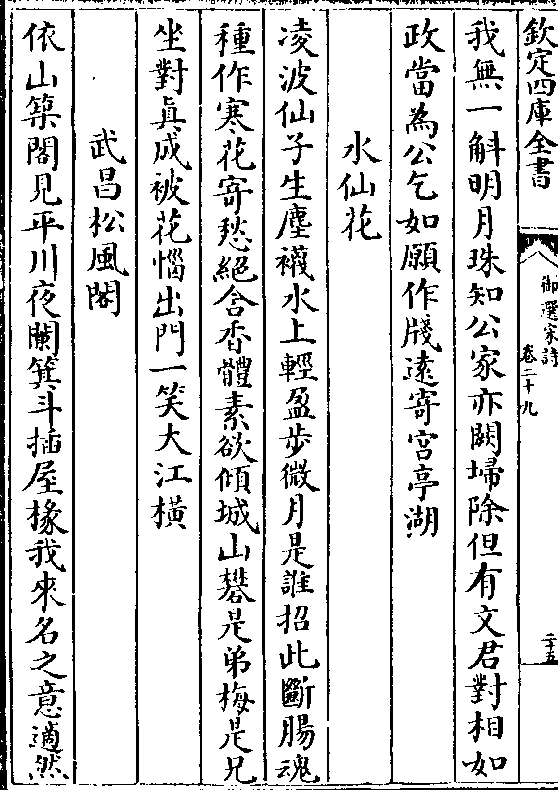 欽定四庫全書
御選宋詩
卷二十九
二十五
我無一斛明月珠知公家亦闕埽除但有文君對相如
政當為公乞如願作牋遠寄宮亭湖
水仙花
凌波仙子生塵襪水上輕盈步微月是誰招此斷腸魂
種作寒花寄愁絕含香體素欲傾城山礬是弟梅是兄
坐對真成被花惱出門一笑大江橫
武昌松風閣
依山築閣見平川夜闌箕斗插屋椽我來名之意適然